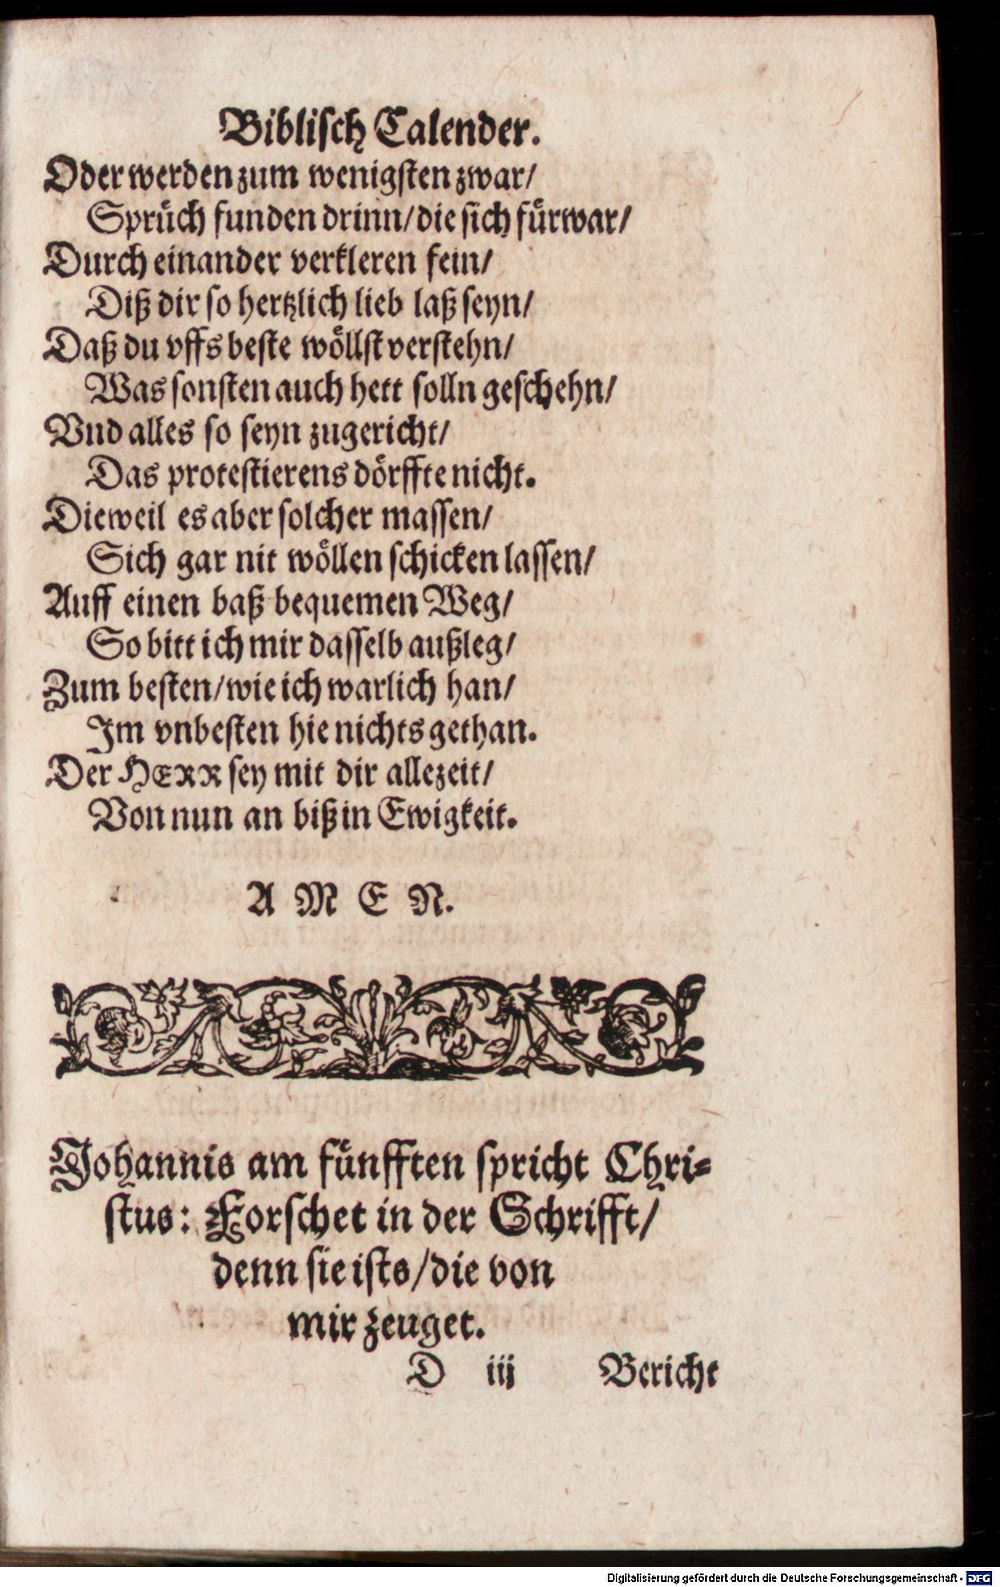 Biblisch Calender.
Oder werden zum wenigsten zwar/
Sprüch funden drinn/die sich fürwar/
Durch einander verkleren fein/
Diß dir so hertzlich lieb laß seyn/
Daß du vffs beste wöllst verstehn/
Was sonsten auch hett solln geschehn/
Vnd alles so seyn zugericht/
Das protestierens dörffte nicht.
Dieweil es aber solcher massen/
Sich gar nit wöllen schicken lassen/
Auff einen baß bequemen Weg/
So bitt ich mir dasselb außleg/
Zum besten/wie ich warlich han/
Im vnbesten hie nichts gethan.
Der HERR sey mit dir allezeit/
Von nun an biß in Ewigkeit.
A M E N.
Johannis am fünfften spricht Chri⸗
stus: Forschet in der Schrifft/
denn sie ists/die von
mir zeuget.
D iij Bericht
Digitalisierung gefördert durch die Deutsche Forschungsgemeinschaft - DFG